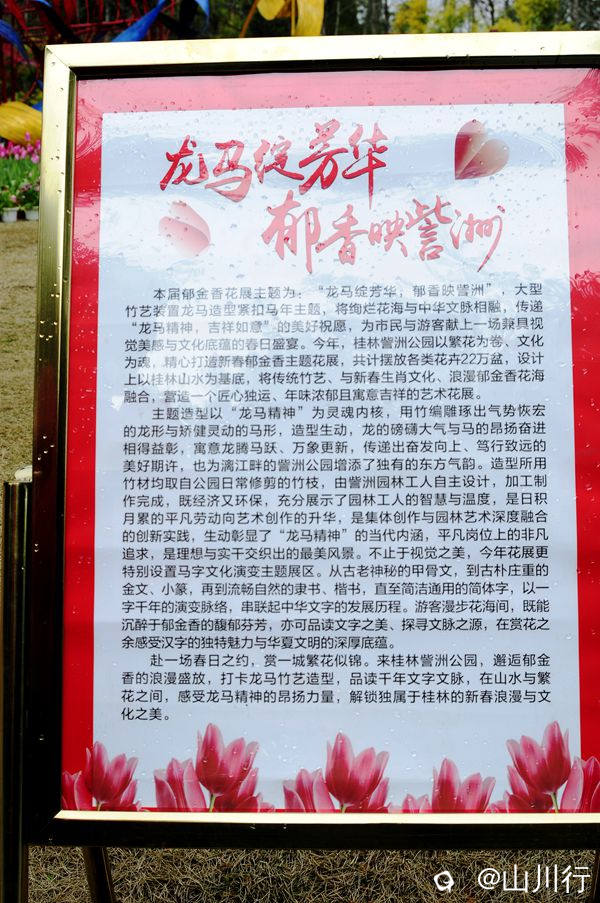 龙马绽芳华
郁香映訾洲
本届郁金香花展主题为：“龙马绽芳华，郁香映訾洲”，大型
竹艺装置龙马造型紧扣马年主题，将绚烂花海与中华文脉相融，传递
“龙马精神，吉祥如意”的美好祝愿，为市民与游客献上一场兼具视
觉美感与文化底蕴的春日盛宴。今年，桂林訾洲公园以繁花为卷、文化
为魂，精心打造新春郁金香主题花展，共计摆放各类花卉22万盆，设计
上以桂林山水为基底，将传统竹艺、与新春生肖文化、浪漫郁金香花海
融合，营造一个匠心独运、年味浓郁且寓意吉祥的艺术花展。
主题造型以“龙马精神”为灵魂内核，用竹编雕琢出气势恢宏
的龙形与矫健灵动的马形，造型生动，龙的磅礴大气与马的昂扬奋进
相得益彰，寓意龙腾马跃、万象更新，传递出奋发向上、笃行致远的
美好期许，也为漓江畔的訾洲公园增添了独有的东方气韵。造型所用
竹材均取自公园日常修剪的竹枝，由訾洲园林工人自主设计，加工制
作完成，既经济又环保，充分展示了园林工人的智慧与温度，是日积
月累的平凡劳动向艺术创作的升华，是集体创作与园林艺术深度融合
的创新实践，生动彰显了“龙马精神”的当代内涵，平凡岗位上的非凡
追求，是理想与实干交织出的最美风景。不止于视觉之美，今年花展更
特别设置马字文化演变主题展区。从古老神秘的甲骨文，到古朴庄重的
金文、小篆，再到流畅自然的隶书、楷书，直至简洁通用的简体字，以一
字千年的演变脉络，串联起中华文字的发展历程。游客漫步花海间，既能
沉醉于郁金香的馥郁芬芳，亦可品读文字之美、探寻文脉之源，在赏花之
余感受汉字的独特魅力与华夏文明的深厚底蕴。
赴一场春日之约，赏一城繁花似锦。来桂林訾洲公园，邂逅郁金
香的浪漫盛放，打卡龙马竹艺造型，品读千年文字文脉，在山水与繁
花之间，感受龙马精神的昂扬力量，解锁独属于桂林的新春浪漫与文
化之美。
@山川行